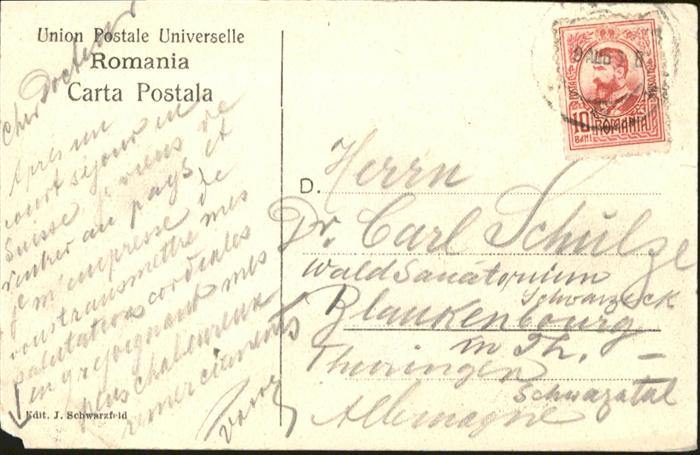 Union Postale Universelle
Romania
Carta Postala
Cher Docteur
Après un
court séjour en
Suisse je viens de
rentrer au pays et
je m'empresse de
vous transmettre mes
salutations cordiales
en y joignant mes
plus chaleureux
remerciements
Edit. J. Schwarzfeld
POSTA
10 ROMANIA
BANI
D.
Herrn
Dr. Carl Schulze
Wald Sanatorium
Schwarzeck
Blankenbourg
in Th. –
Thuringen
Schwazatal
Allemagne